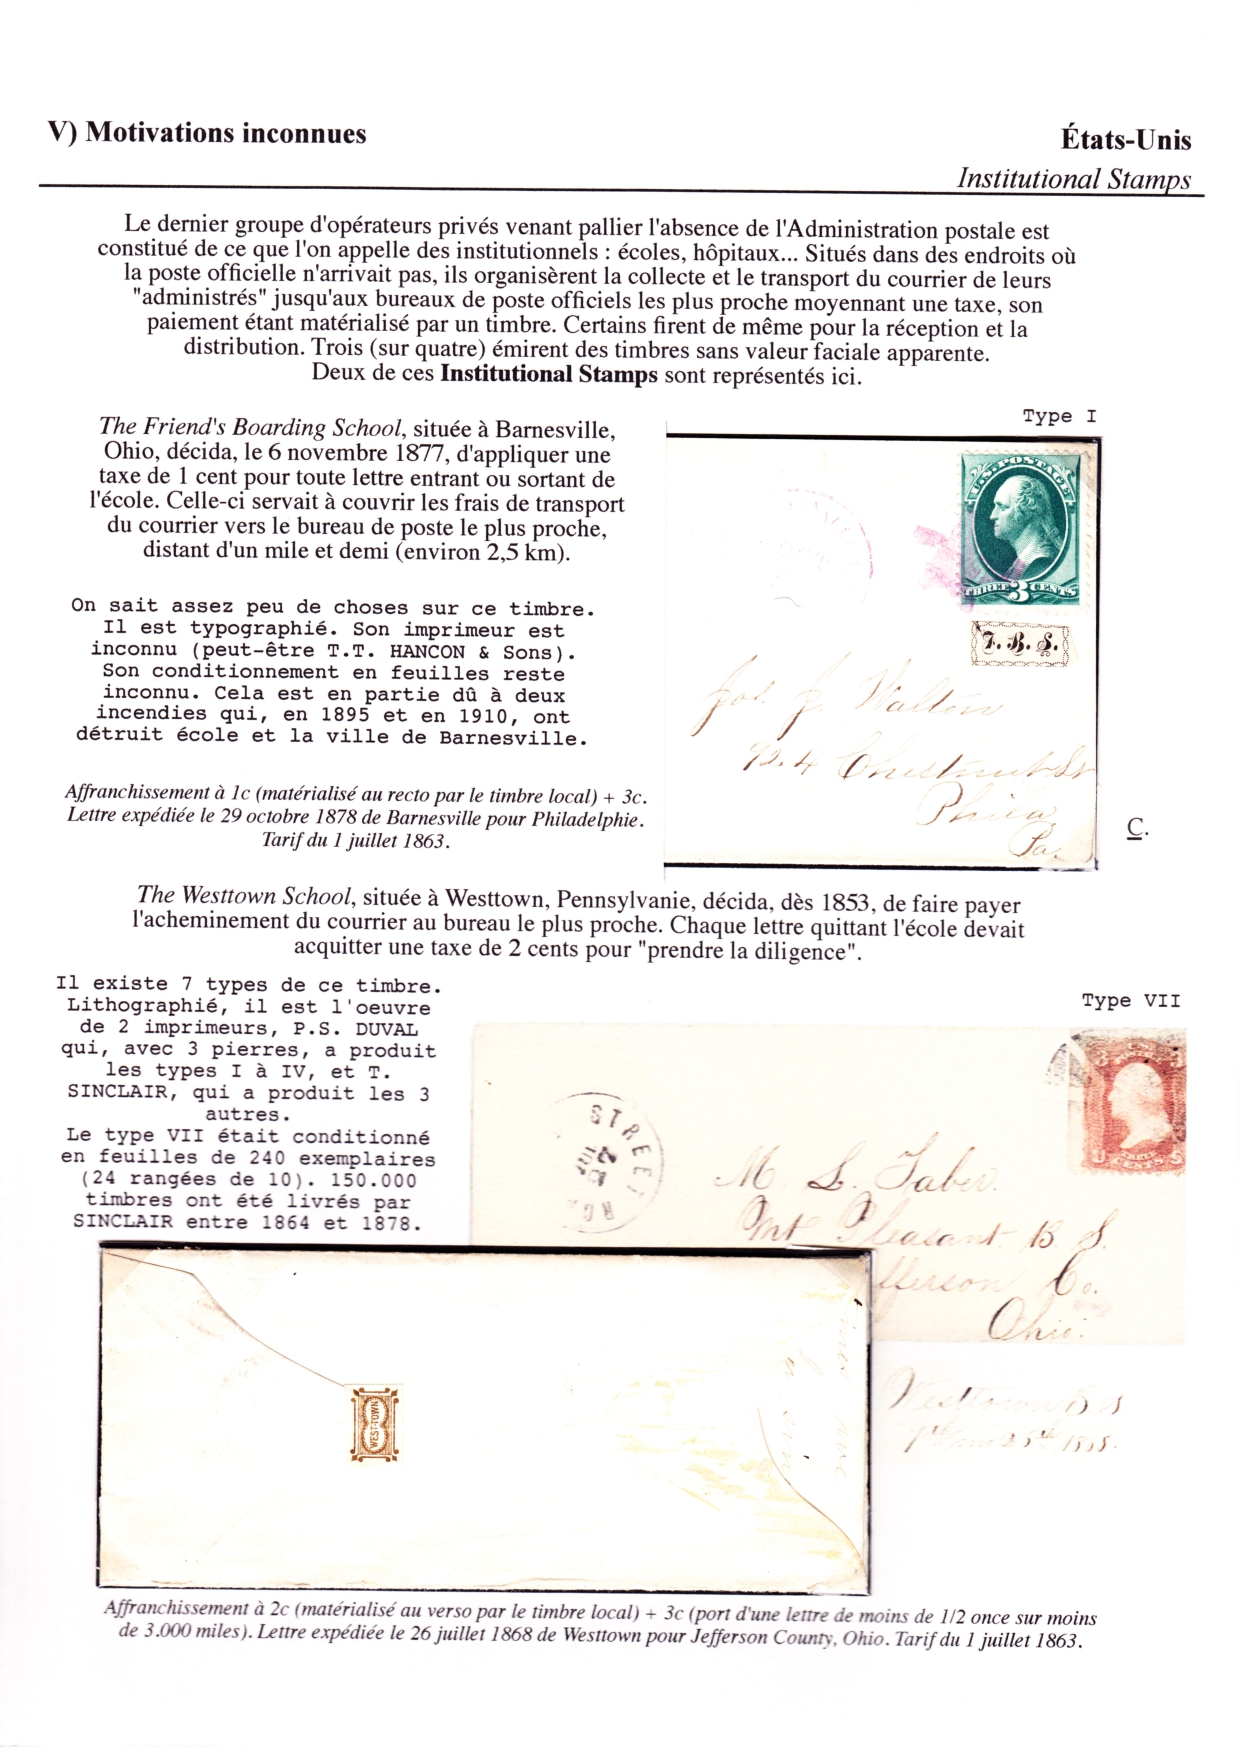 V) Motivations inconnues
États-Unis
Institutional Stamps
Le dernier groupe d'opérateurs privés venant pallier l'absence de l'Administration postale est
constitué de ce que l'on appelle des institutionnels : écoles, hôpitaux... Situés dans des endroits où
la poste officielle n'arrivait pas, ils organisèrent la collecte et le transport du courrier de leurs
"administrés" jusqu'aux bureaux de poste officiels les plus proche moyennant une taxe, son
paiement étant matérialisé par un timbre. Certains firent de même pour la réception et la
distribution. Trois (sur quatre) émirent des timbres sans valeur faciale apparente.
Deux de ces Institutional Stamps sont représentés ici.
The Friend's Boarding School, située à Barnesville,
Ohio, décida, le 6 novembre 1877, d'appliquer une
taxe de 1 cent pour toute lettre entrant ou sortant de
l'école. Celle-ci servait à couvrir les frais de transport
du courrier vers le bureau de poste le plus proche,
distant d'un mile et demi (environ 2,5 km).
On sait assez peu de choses sur ce timbre.
Il est typographié. Son imprimeur est
inconnu (peut-être T.T. HANCON & Sons).
Son conditionnement en feuilles reste
inconnu. Cela est en partie dû à deux
incendies qui, en 1895 et en 1910, ont
détruit école et la ville de Barnesville.
Affranchissement à 1c (matérialisé au recto par le timbre local) + 3c.
Lettre expédiée le 29 octobre 1878 de Barnesville pour Philadelphie.
Tarif du 1 juillet 1863.
Type I
U.S. POSTAGE
THREE 3 CENTS
F. B. S.
Jos. J. Walton
924 Chestnut St
Phila
Pa.
C.
The Westtown School, située à Westtown, Pennsylvanie, décida, dès 1853, de faire payer
l'acheminement du courrier au bureau le plus proche. Chaque lettre quittant l'école devait
acquitter une taxe de 2 cents pour "prendre la diligence".
Il existe 7 types de ce timbre.
Lithographié, il est l'oeuvre
de 2 imprimeurs, P.S. DUVAL
qui, avec 3 pierres, a produit
les types I à IV, et T.
SINCLAIR, qui a produit les 3
autres.
Le type VII était conditionné
en feuilles de 240 exemplaires
(24 rangées de 10). 150.000
timbres ont été livrés par
SINCLAIR entre 1864 et 1878.
Type VII
STREET
M. L. Taber.
Mt Pleasant B. S.
Jefferson Co.
Ohio.
WEST-TOWN
Westtown B S
Affranchissement à 2c (matérialisé au verso par le timbre local) + 3c (port d'une lettre de moins de 1/2 once sur moins
de 3.000 miles). Lettre expédiée le 26 juillet 1868 de Westtown pour Jefferson County, Ohio. Tarif du 1 juillet 1863.